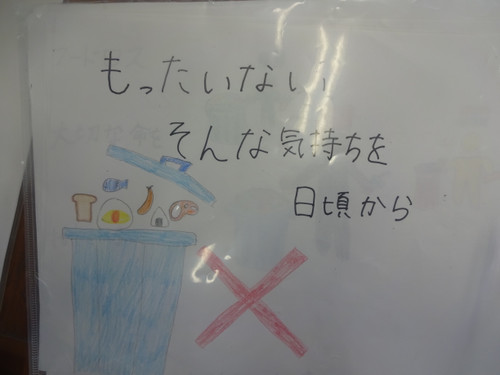 もったいない
そんな気持ちを
日頃から